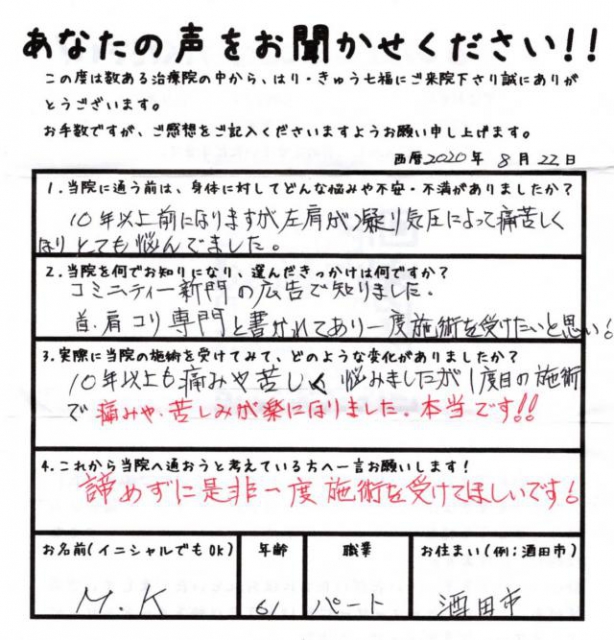 あなたの声をお聞かせください!!
この度は数ある治療院の中から、はり・きゅう七福にご来院下さり誠にありが
とうございます。
お手数ですが、ご感想をご記入くださいますようお願い申し上げます。
西暦2020年 8月22日
1.当院に通う前は、身体に対してどんな悩みや不安・不満がありましたか?
10年以上前になりますが左肩が凝り気圧によって痛苦しく
なりとても悩んでました。
2.当院を何でお知りになり、選んだきっかけは何ですか?
コミニティー新聞の広告で知りました.
首.肩コリ専門と書かれてあり一度施術を受けたいと思い
3.実際に当院の施術を受けてみて、どのような変化がありましたか?
10年以上も痛みや苦しく悩みましたが1度目の施術
で痛みや.苦しみが楽になりました.本当です!!
4.これから当院へ通おうと考えている方へ一言お願いします!
諦めずに是非一度施術を受けてほしいです
お名前(イニシャルでもOK) 年齢 職業 お住まい(例:酒田市)
M.K 61 パート 酒田市